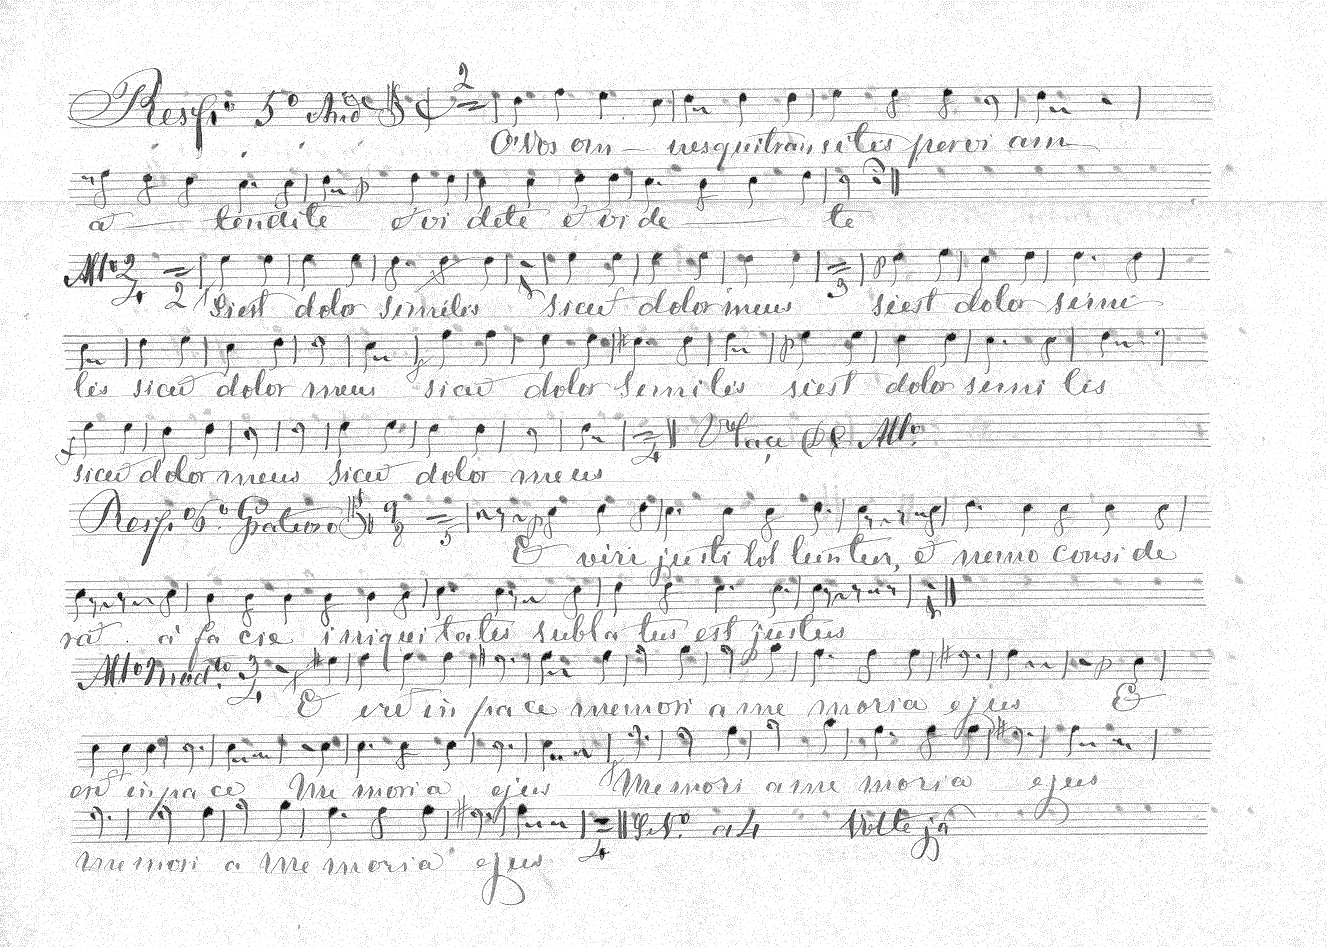 Resp.º 5º And.e 2
O Vos om - nes qui tran si tis per vi am
a - tendite et vi dete et vi de - te
All.º 2/4 2 3
Si est dolor similis sicut dolor meus si est dolor simi
lis sicut dolor meus sicut dolor similis si est dolor simi lis
f 4 All.º
sicut dolor meus sicut dolor meus
Resp.º 6.º Gratioso 9/8 5 p
Et viri justi tol luntur, et nemo consi de
rat a fa cie iniquitatis subla tus est justus
All.º Mod.to 3/4 f p p
Et erit in pa ce memori a me moria ejus Et
erit in pa ce Me moria ejus Memori a me moria ejus
4 a 4 Volte já
memori a me moria ejus